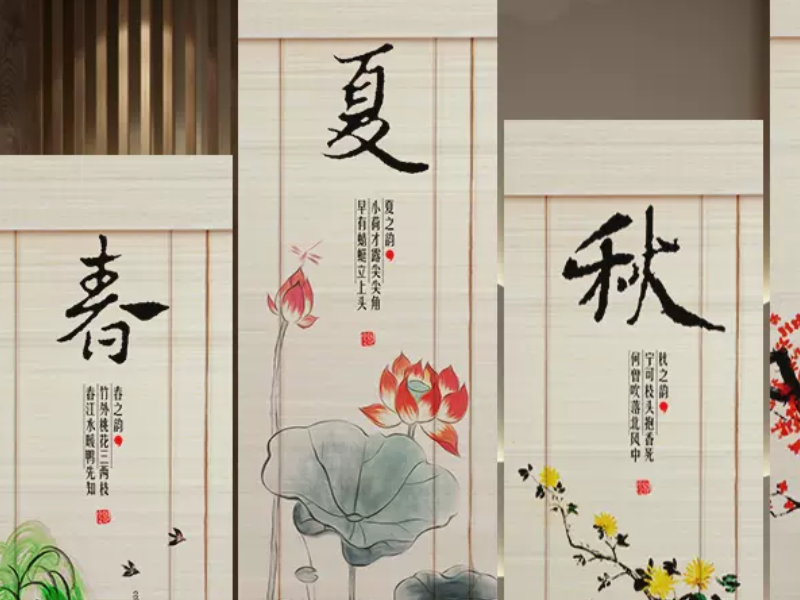 春
春之韵
竹外桃花三两枝
春江水暖鸭先知
夏
夏之韵
小荷才露尖尖角
早有蜻蜓立上头
秋
秋之韵
宁可枝头抱香死
何曾吹落北风中